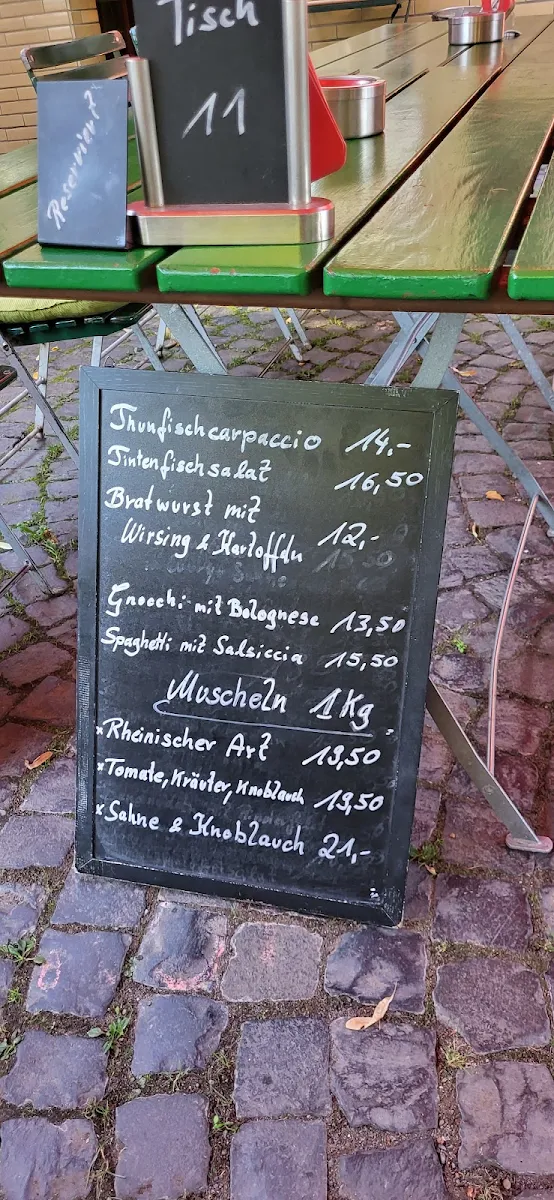 Tisch
11
Reserviert
Thunfischcarpaccio 14,-
Tintenfischsalat 16,50
Bratwurst mit
Wirsing & Kartoffeln 12,-
Gnocchi mit Bolognese 13,50
Spaghetti mit Salsiccia 15,50
Muscheln 1Kg
x Rheinischer Art 19,50
x Tomate, Kräuter, Knoblauch 19,50
x Sahne & Knoblauch 21,-